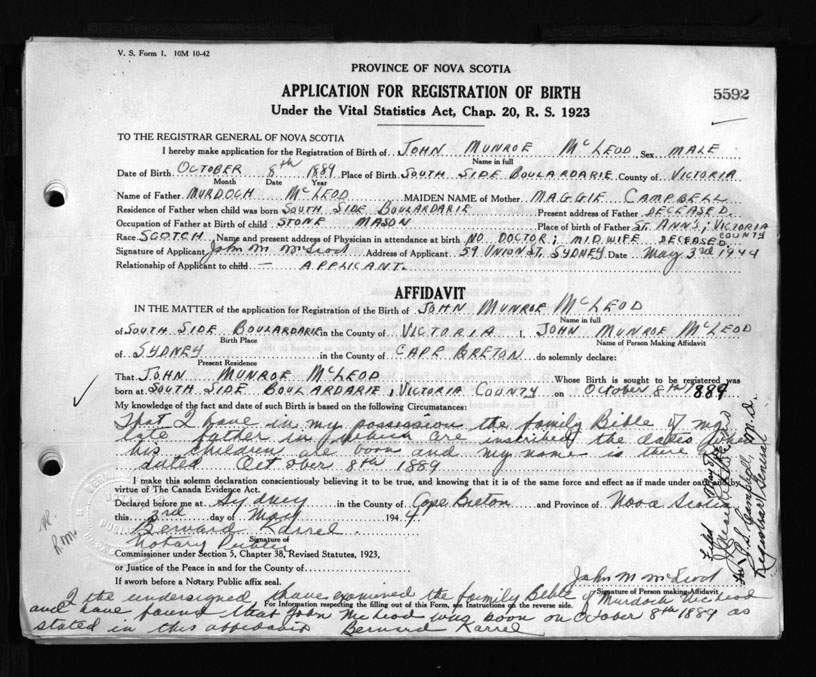 V. S. Form 1. 10M 10-42
PROVINCE OF NOVA SCOTIA
APPLICATION FOR REGISTRATION OF BIRTH
5592
Under the Vital Statistics Act, Chap. 20, R. S. 1923
TO THE REGISTRAR GENERAL OF NOVA SCOTIA
I hereby make application for the Registration of Birth of JOHN MUNROE McLEOD Sex MALE
Name in full
Date of Birth OCTOBER 8th 1889 Place of Birth SOUTH SIDE BOULARDARIE County of VICTORIA
Month Date Year
Name of Father MURDOCH McLEOD MAIDEN NAME of Mother MAGGIE CAMPBELL
Residence of Father when child was born SOUTH SIDE BOULARDARIE Present address of Father DECEASED
Occupation of Father at Birth of child STONE MASON Place of Birth of Father ST. ANNS, VICTORIA COUNTY
Race SCOTCH Name and present address of Physician in attendance at birth NO DOCTOR; MIDWIFE DECEASED
Signature of Applicant John M McLeod Address of Applicant 59 UNION ST. SYDNEY Date May 3rd 1944
Relationship of Applicant to child — APPLICANT.
AFFIDAVIT
IN THE MATTER of the application for Registration of the Birth of JOHN MUNROE McLEOD
Name in full
of SOUTH SIDE BOULARDARIE in the County of VICTORIA I, JOHN MUNROE McLEOD
Birth Place Name of Person Making Affidavit
of SYDNEY in the County of CAPE BRETON do solemnly declare:
Present Residence
That JOHN MUNROE McLEOD Whose Birth is sought to be registered was
born at SOUTH SIDE BOULARDARIE, VICTORIA COUNTY on October 8th 1889
My knowledge of the fact and date of such Birth is based on the following Circumstances:
That I have in my possession the family Bible of my
late father in which are inscribed the dates when
his children are born and my name is there
dated October 8th 1889
I make this solemn declaration conscientiously believing it to be true, and knowing that it is of the same force and effect as if made under oath and by
virtue of The Canada Evidence Act.
Declared before me at Sydney in the County of Cape Breton and Province of Nova Scotia
this 3rd day of May 1944.
Bernard Karrel
Signature of
Notary Public
Commissioner under Section 5, Chapter 38, Revised Statutes, 1923,
or Justice of the Peace in and for the County of
If sworn before a Notary Public affix seal.
John M McLeod
Signature of Person making Affidavit
For Information respecting the filling out of this Form, see Instructions on the reverse side.
I the undersigned have examined the family Bible of Murdoch McLeod
and have found that John McLeod was born on October 8th 1889 as
stated in this affidavit Bernard Karrel
Campbell, M.D.
Registrar General